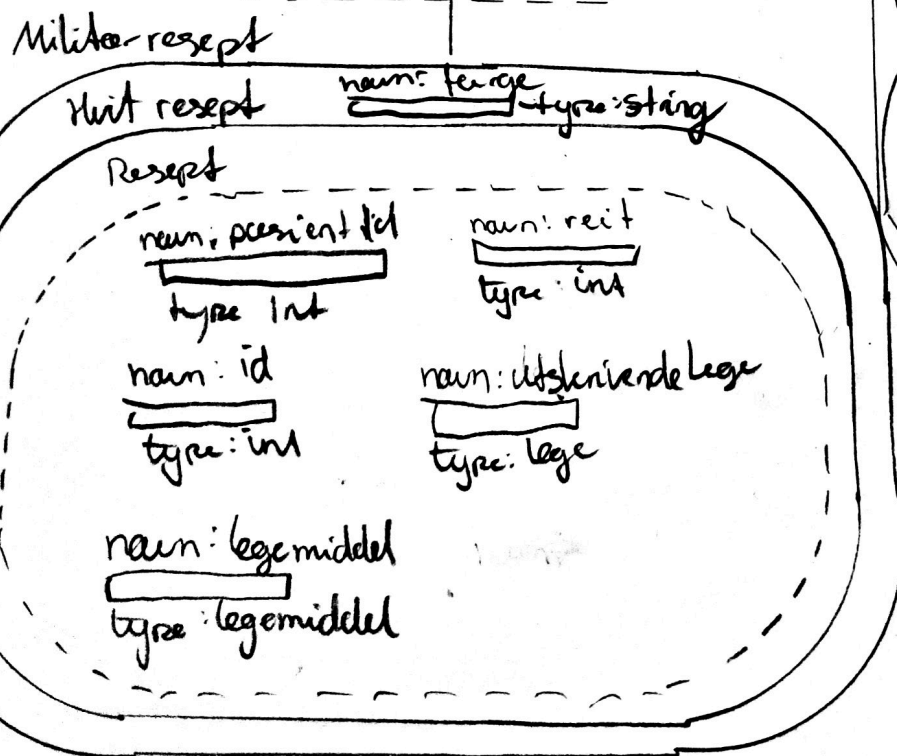 Militærresept
Hvit resept
navn: farge
type: string
Resept
navn: pasient Id
type Int
navn: reit
type: int
navn: id
type: int
navn: utskrivende Lege
type: lege
navn: legemiddel
type: legemiddel